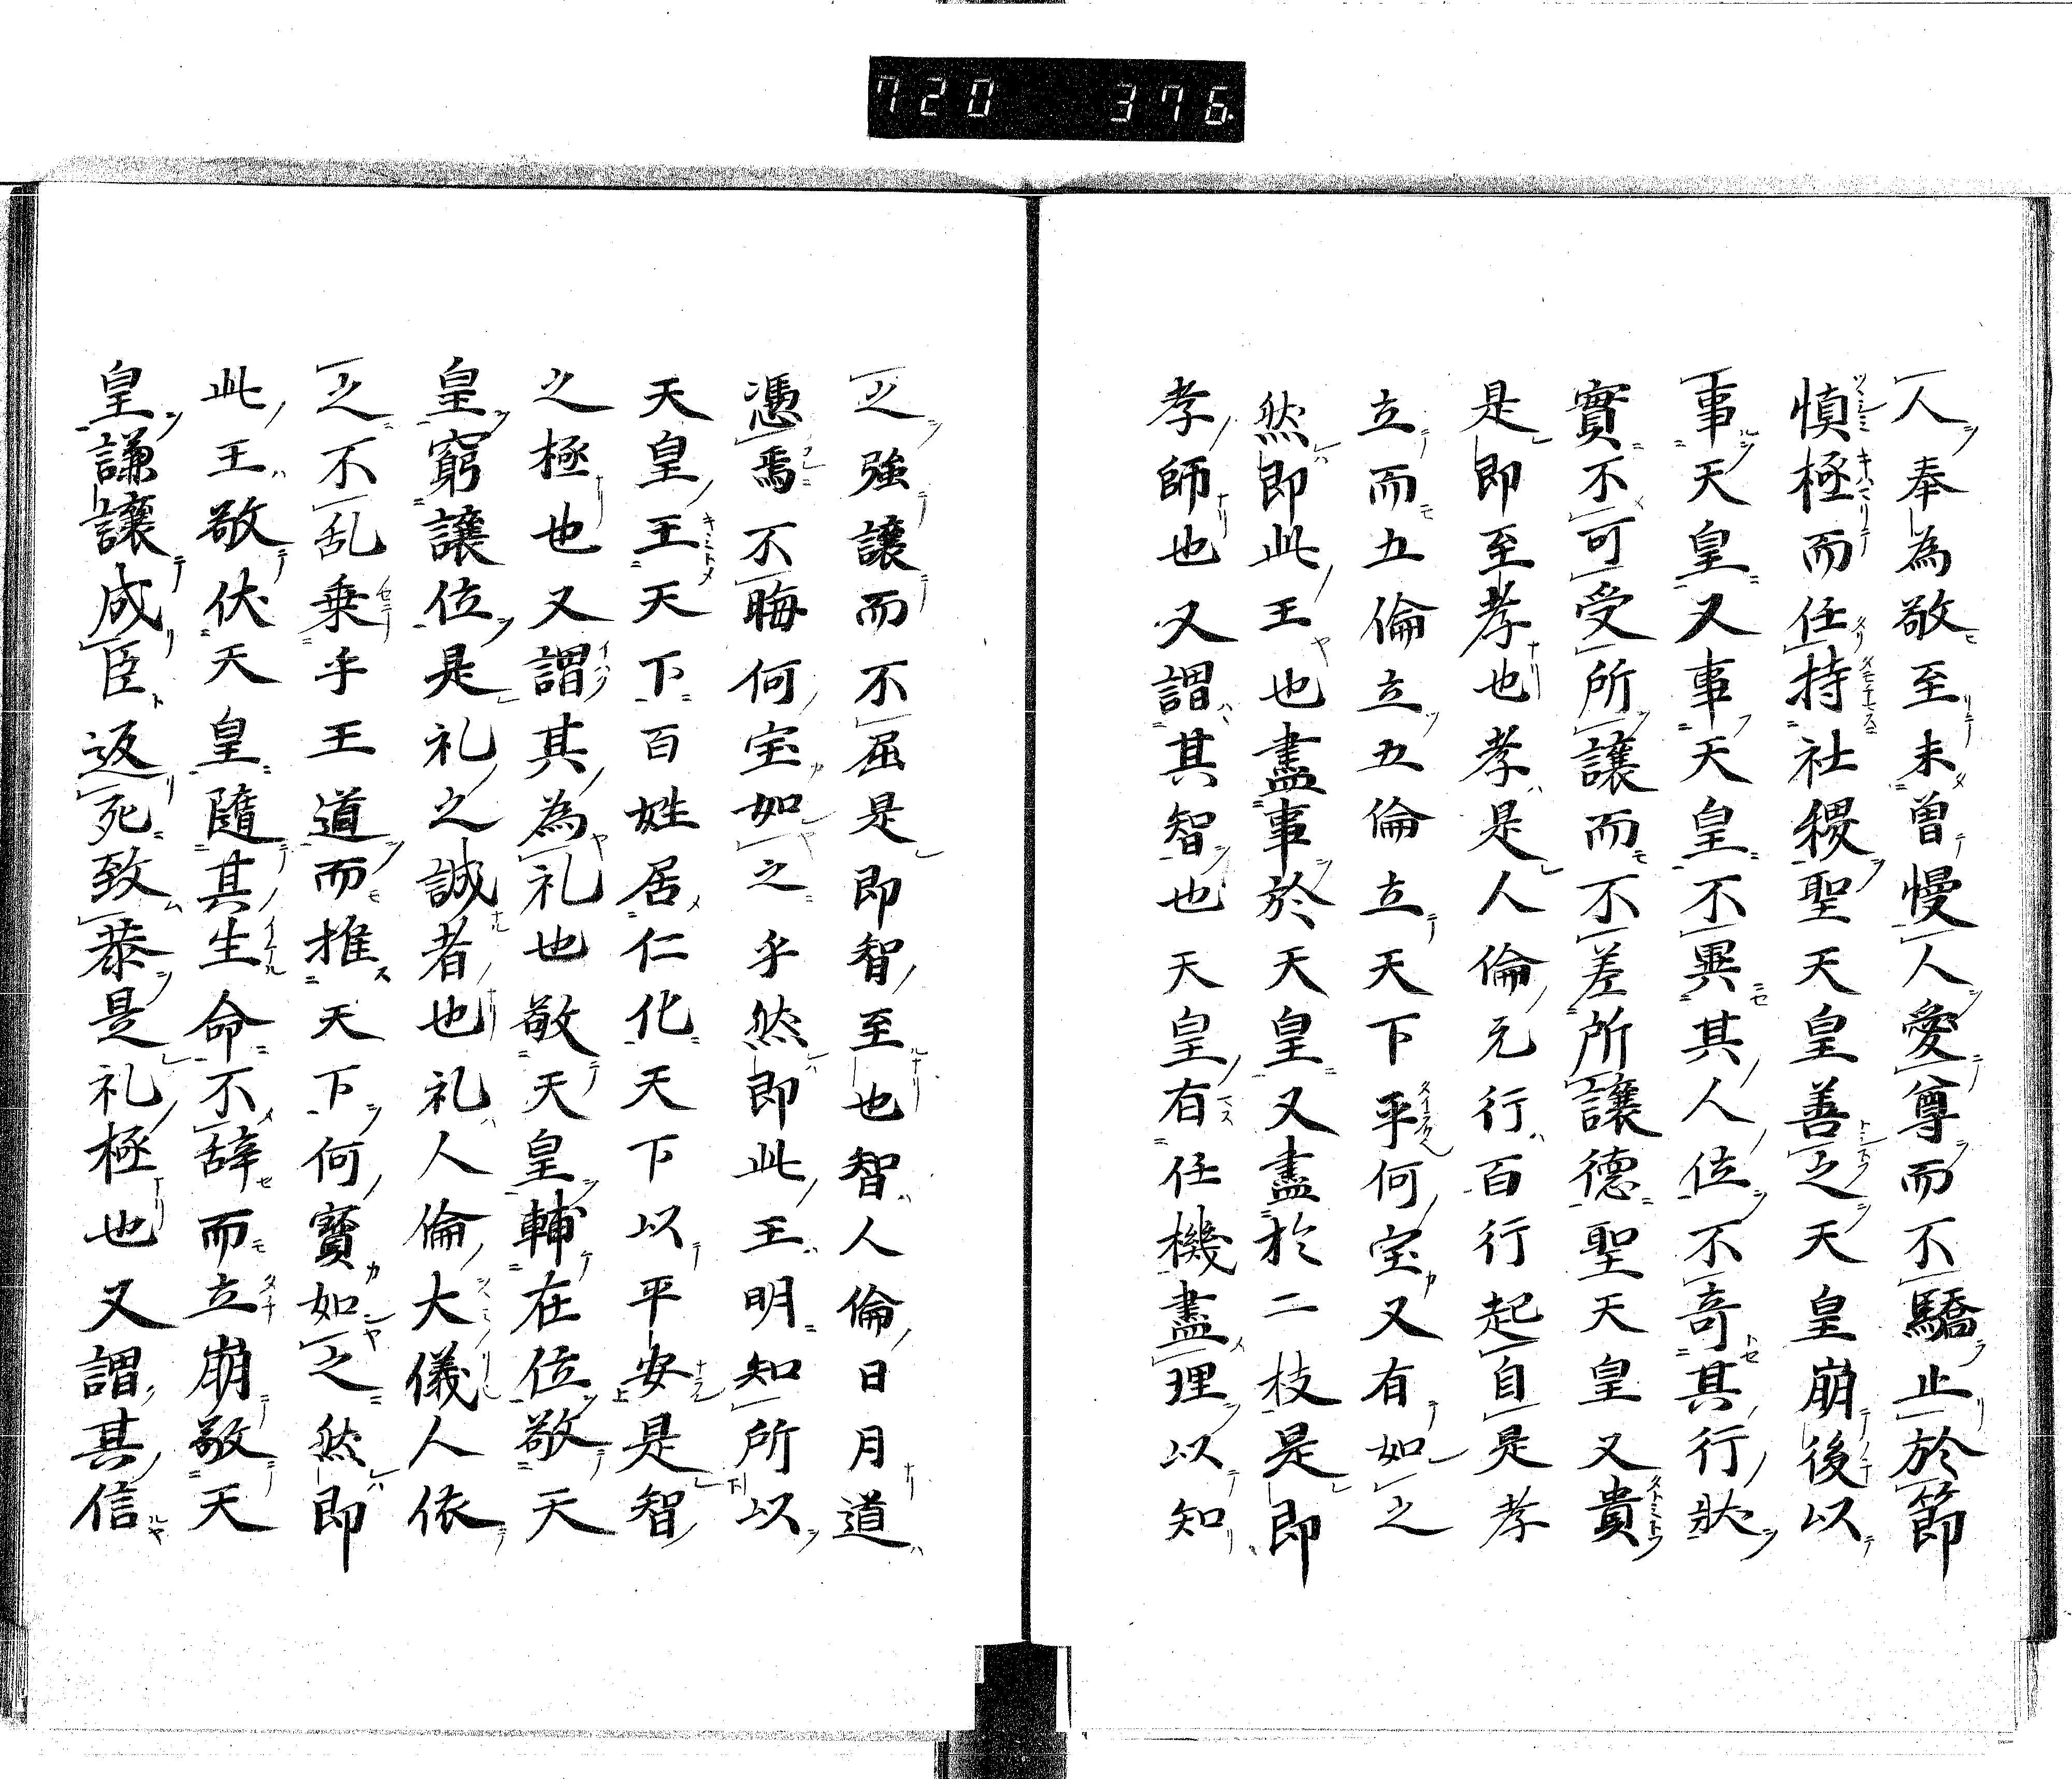 720 376
人奉為敬至未曽慢人愛尊而不驕止於節
慎極而任持社稷聖天皇善之天皇崩後以
事天皇又事天皇不異其人位不奇其行状
實不可受所讓而不差所讓德聖天皇又貴
是即至孝也孝是人倫元行百行起自是孝
立而五倫立五倫立天下平何宝又有如之
然即此王也盡事於天皇又盡於二枝是即
孝師也又謂其智也天皇有任機盡理以知
之強讓而不屈是即智至也智人倫日月道
憑焉不晦何宝如之乎然即此王明知所以
天皇王天下百姓居仁化天下以平安是智
之極也又謂其為礼也敬天皇輔在位敬天
皇窮讓位是礼之誠者也礼人倫大儀人依
之不乱乗乎王道而推天下何寶如之然即
此王敬伏天皇随其生命不辞而立崩敬天
皇謙讓成臣返死致恭是礼極也又謂其信